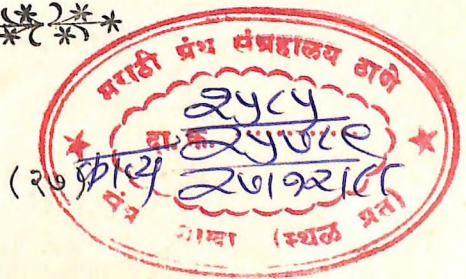 मराठी ग्रंथ संग्रहालय ठाणे
२५८५
दा. क्र. २५७८९
(२७) काव्य २७।१२।८८
शाखा (स्थळ प्रत)